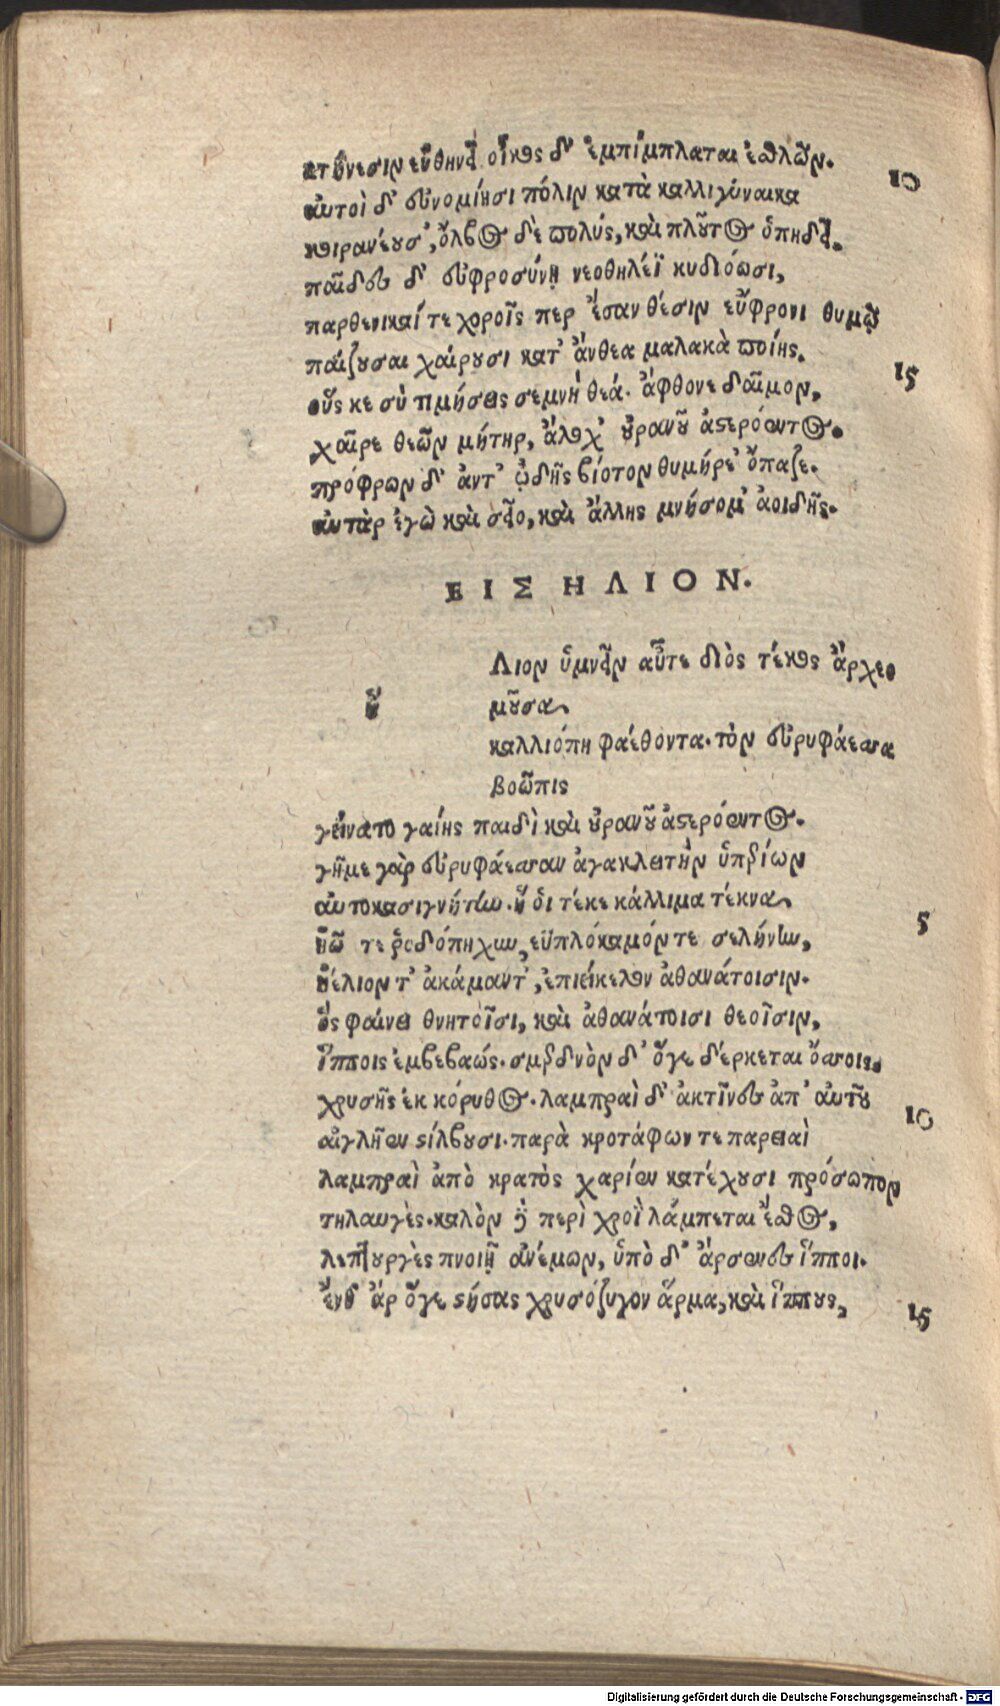 κτήνεσιν εὐθηνεῖ οἶκος δ' ἐμπίμπλαται ἐσθλῶν.
10
αὐτοὶ δ' εὐνομίησι πόλιν κατὰ καλλιγύναικα
κοιρανέουσ', ὄλβος δὲ πολύς, καὶ πλοῦτος ὀπηδεῖ.
παῖδες δ' εὐφροσύνῃ νεοθηλέϊ κυδιόωσι,
παρθενικαί τε χοροῖς περ ἐσανθέσιν εὔφρονι θυμῷ
παίζουσαι χαίρουσι κατ' ἄνθεα μαλακὰ ποίης.
15
οὕς κε σὺ τιμήσεις σεμνὴ θεά. ἄφθονε δαῖμον,
χαῖρε θεῶν μήτηρ, ἄλοχ' οὐρανοῦ ἀστερόεντος.
πρόφρων δ' ἀντ' ᾠδῆς βίοτον θυμήρε' ὄπαζε.
αὐτὰρ ἐγὼ καὶ σεῖο, καὶ ἄλλης μνήσομ' ἀοιδῆς.
ΕΙΣ ΗΛΙΟΝ.
Λιον ὑμνεῖν αὖτε διὸς τέκος ἄρχεο
ἥ
μοῦσα
καλλιόπη φαέθοντα. τὸν εὐρυφάεσσα
βοῶπις
γείνατο γαίης παιδὶ καὶ οὐρανοῦ ἀστερόεντος.
γῆμε γὰρ εὐρυφάεσσαν ἀγακλειτὴν ὑπερίων
αὐτοκασιγνήτην. ἥ οἱ τέκε κάλλιμα τέκνα
5
ἠῶ τε ῥοδόπηχυν, εϋπλόκαμόν τε σελήνην,
ἠέλιον τ' ἀκάμαντ', ἐπιείκελον ἀθανάτοισιν.
ὃς φαίνει θνητοῖσι, καὶ ἀθανάτοισι θεοῖσιν,
ἵπποις ἐμβεβαώς. σμερδνὸν δ' ὅγε δέρκεται ὄσσοις
χρυσῆς ἐκ κόρυθος. λαμπραὶ δ' ἀκτῖνες ἀπ' αὐτοῦ
10
αἰγλῆεν στίλβουσι. παρὰ κροτάφων τε παρειαὶ
λαμπραὶ ἀπὸ κρατὸς χαρίεν κατέχουσι πρόσωπον
τηλαυγὲς. καλὸν δὲ περὶ χροῒ λάμπεται ἔσθος,
λεπτουργὲς πνοιῇ ἀνέμων, ὑπὸ δ' ἄρσενες ἵπποι.
ἔνθ' ἄρ ὅγε στήσας χρυσόζυγον ἅρμα, καὶ ἵππους,
15
Digitalisierung gefördert durch die Deutsche Forschungsgemeinschaft - DFG